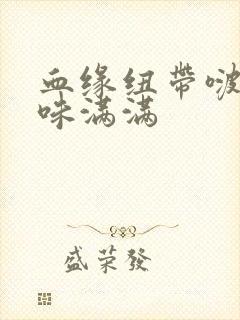 血缘纽带啵
咪满满
盛荣發